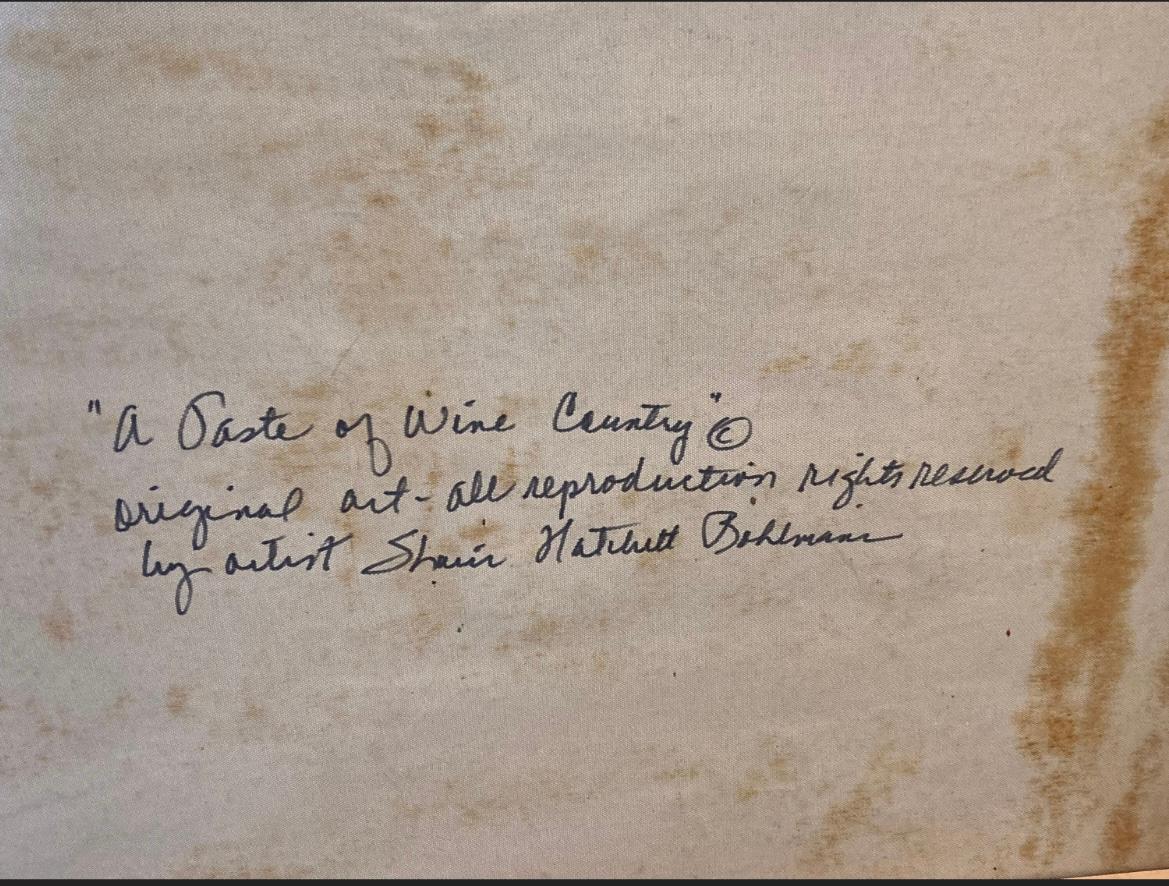 "A Taste of Wine Country" ©
original art - all reproduction rights reserved
by artist Hatchett Bohlmann